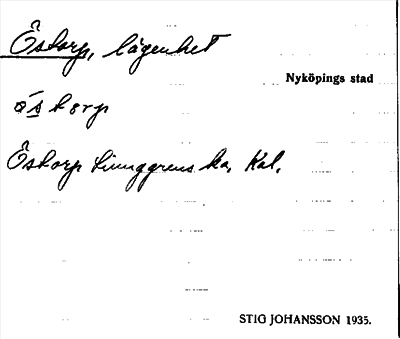 Östorp, lägenhet
Nyköpings stad
ö́stɔrp
Östorp Ljunggrens ka, Kal.
STIG JOHANSSON 1935.